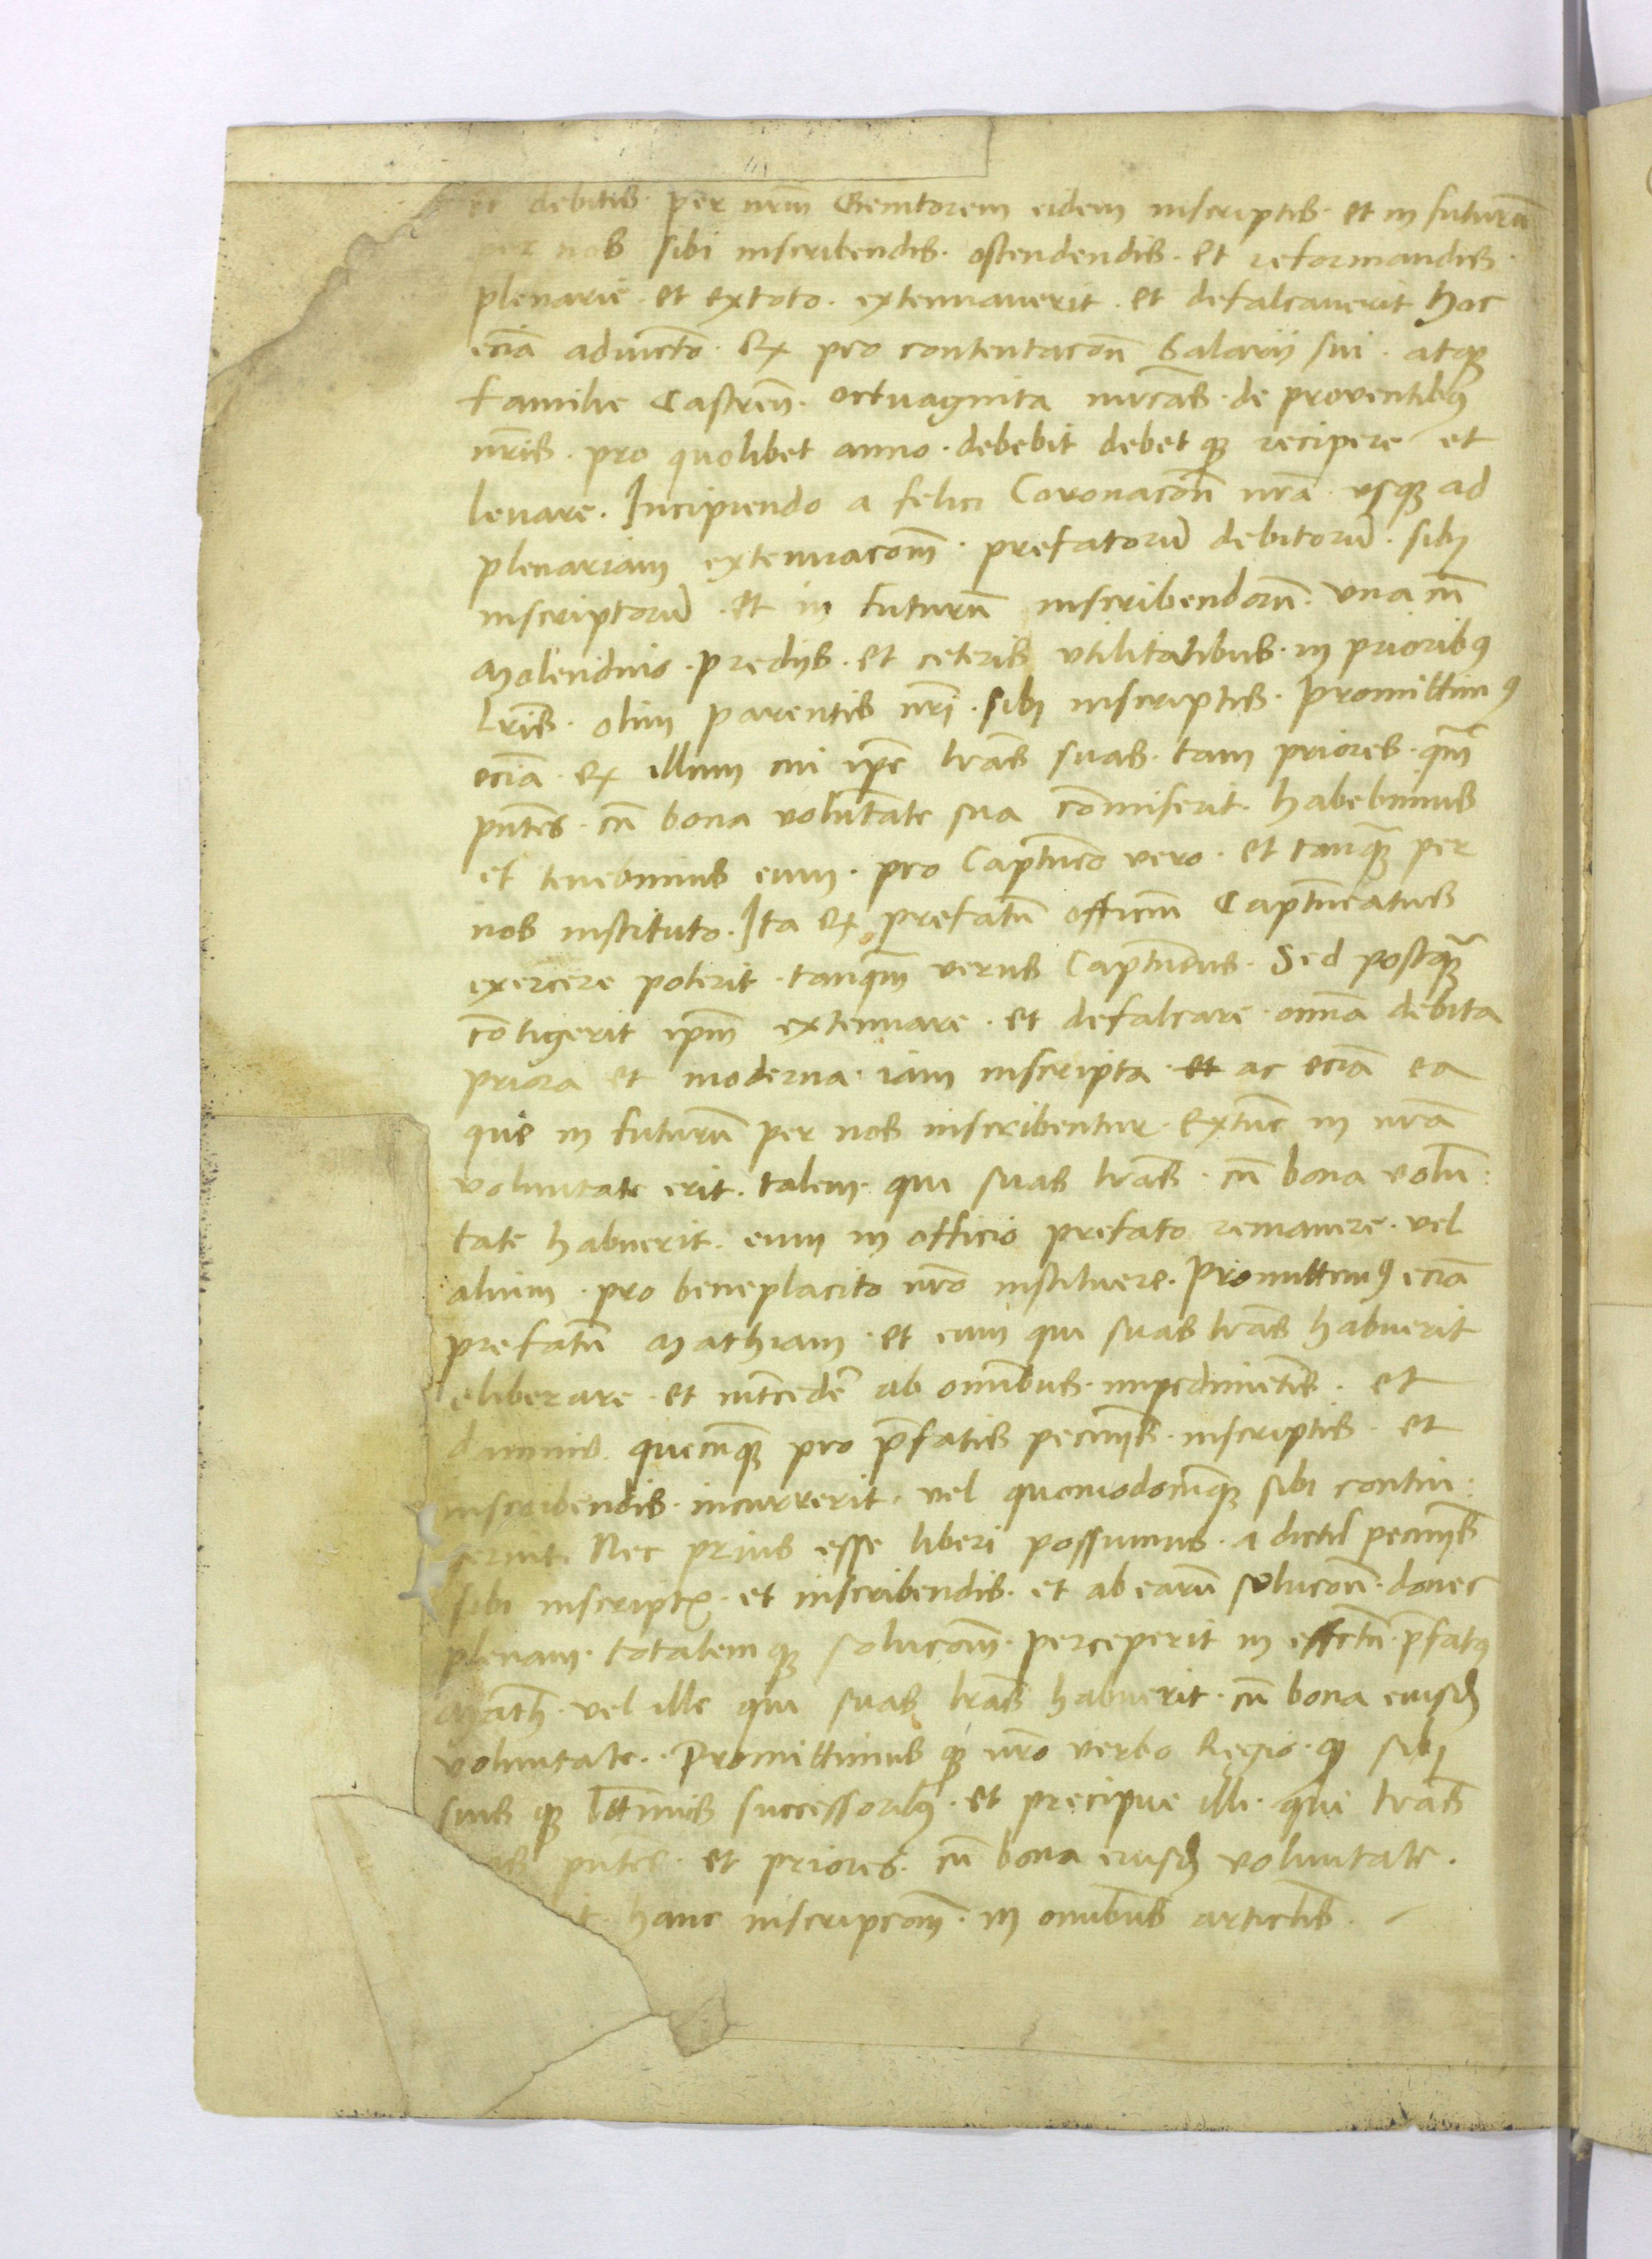 et debitis · per nrm̄ Genitorem eidem inscriptis · et in futurū
per nos sibi inscribendis · ostendendis · et reformandis ·
plenarie · et extoto · extenuauerit · et defalcauerit hoc
eciā adiuncto · Qꝫ pro contentacōn Salarij sui · atqꝫ
familie Castreñ · octuaginta mrcas · de prouentibꝰ
nrīs · pro quolibet anno · debebit debetqꝫ recipere et
leuare · Incipiendo a felici Coronacōn nrā usqꝫ ad
plenariam extenuacōm · prefatorū debitorū · sibi
inscriptorū · et in futurū inscribendorū · una cū
Molendinis · predijs · et ceteris utilitatibus · in prioribꝰ
Lrīs · olim parentis nrī · sibi inscriptis · Promittimꝰ
eciā · qꝫ illum cui ipē lrās suas · tam priores · qm̄
pn̄tes · cū bona volūtate sua cōmiserit · habebimus
et tenebimus eum · pro Captuneo vero · et tanqꝫ per
nos instituto · Ita qꝫ prefatū officiū Captuneatus
exercere poterit · tanqm̄ verus Captuneus · Sed postqꝫ
cōtigerit ipm̄ extenuare · et defalcare · omnia debita
priora et moderna · iam inscripta · et ac eciā ea
que in futurū per nos inscribentur · extūc in nrā
voluntate erit · talem · qui suas lrās · cū bona volū:
tate habuerit · eum in officio prefato remanere · vel
alium · pro beneplacito nrō instituere · Promittimꝰ eciā
prefatū Mathiam · et eum qui suas lrās habuerit
eliberare · et intcedē ab omībus · impedimētis · et
damnis · quecūqꝫ pro p̄fatis pecunijs · inscriptis · et
inscribendis · incurrerit · vel quomodocūqꝫ sibi contin:
gerint · Nec prius esse liberi possumus · a dictis pecunijs
sibi inscriptꝭ · et inscribendis · et ab earū solucōn · donec
plenam · totalemqꝫ solucōm · perceperit in effectū · p̄fatꝰ
Math · vel ille qui suas lrās habuerit · cū bona eiusd
voluntate · Promittimusqꝫ nrō verbo Regio · qꝫ sibi
suisqꝫ lttīmis successoribꝰ · et precipue illi · qui lrās
pn̄tes · et priores · cū bona eiusd voluntate ·
hanc inscripcōm · in omībus articlis ·